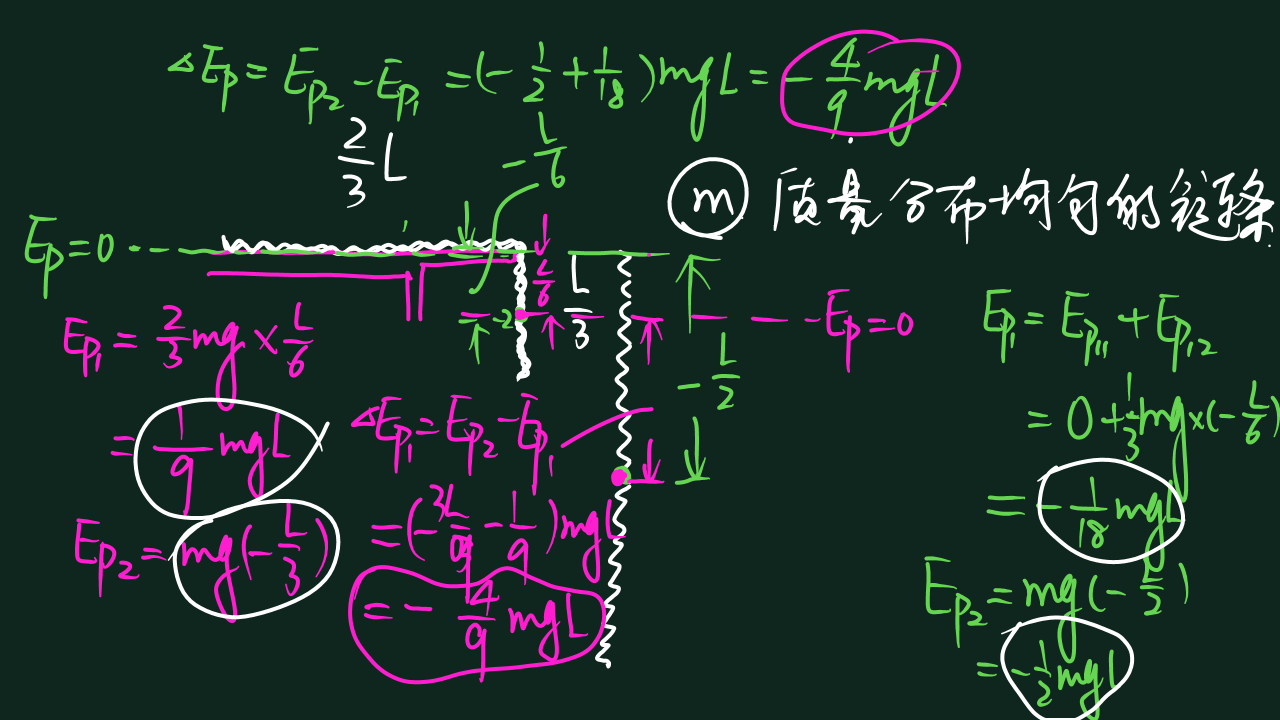 △Ep = Ep₂ - Ep₁ = (-1/2 + 1/18)mgL = -4/9 mgL
2/3 L
-L/6
m 质量分布均匀的链条
Ep=0
L/6
L/3
-L/2
Ep=0
Ep₁ = 2/3 mg × L/6
= 1/9 mgL
Ep₂ = mg(-L/3)
△Ep₁ = Ep₂ - Ep₁
mgL
= -4/9 mgL
Ep₁ = Ep₁₁ + Ep₁₂
= 0 + 1/3 mg × (-L/6)
= -1/18 mgL
Ep₂ = mg(-L/2)
= -1/2 mgL